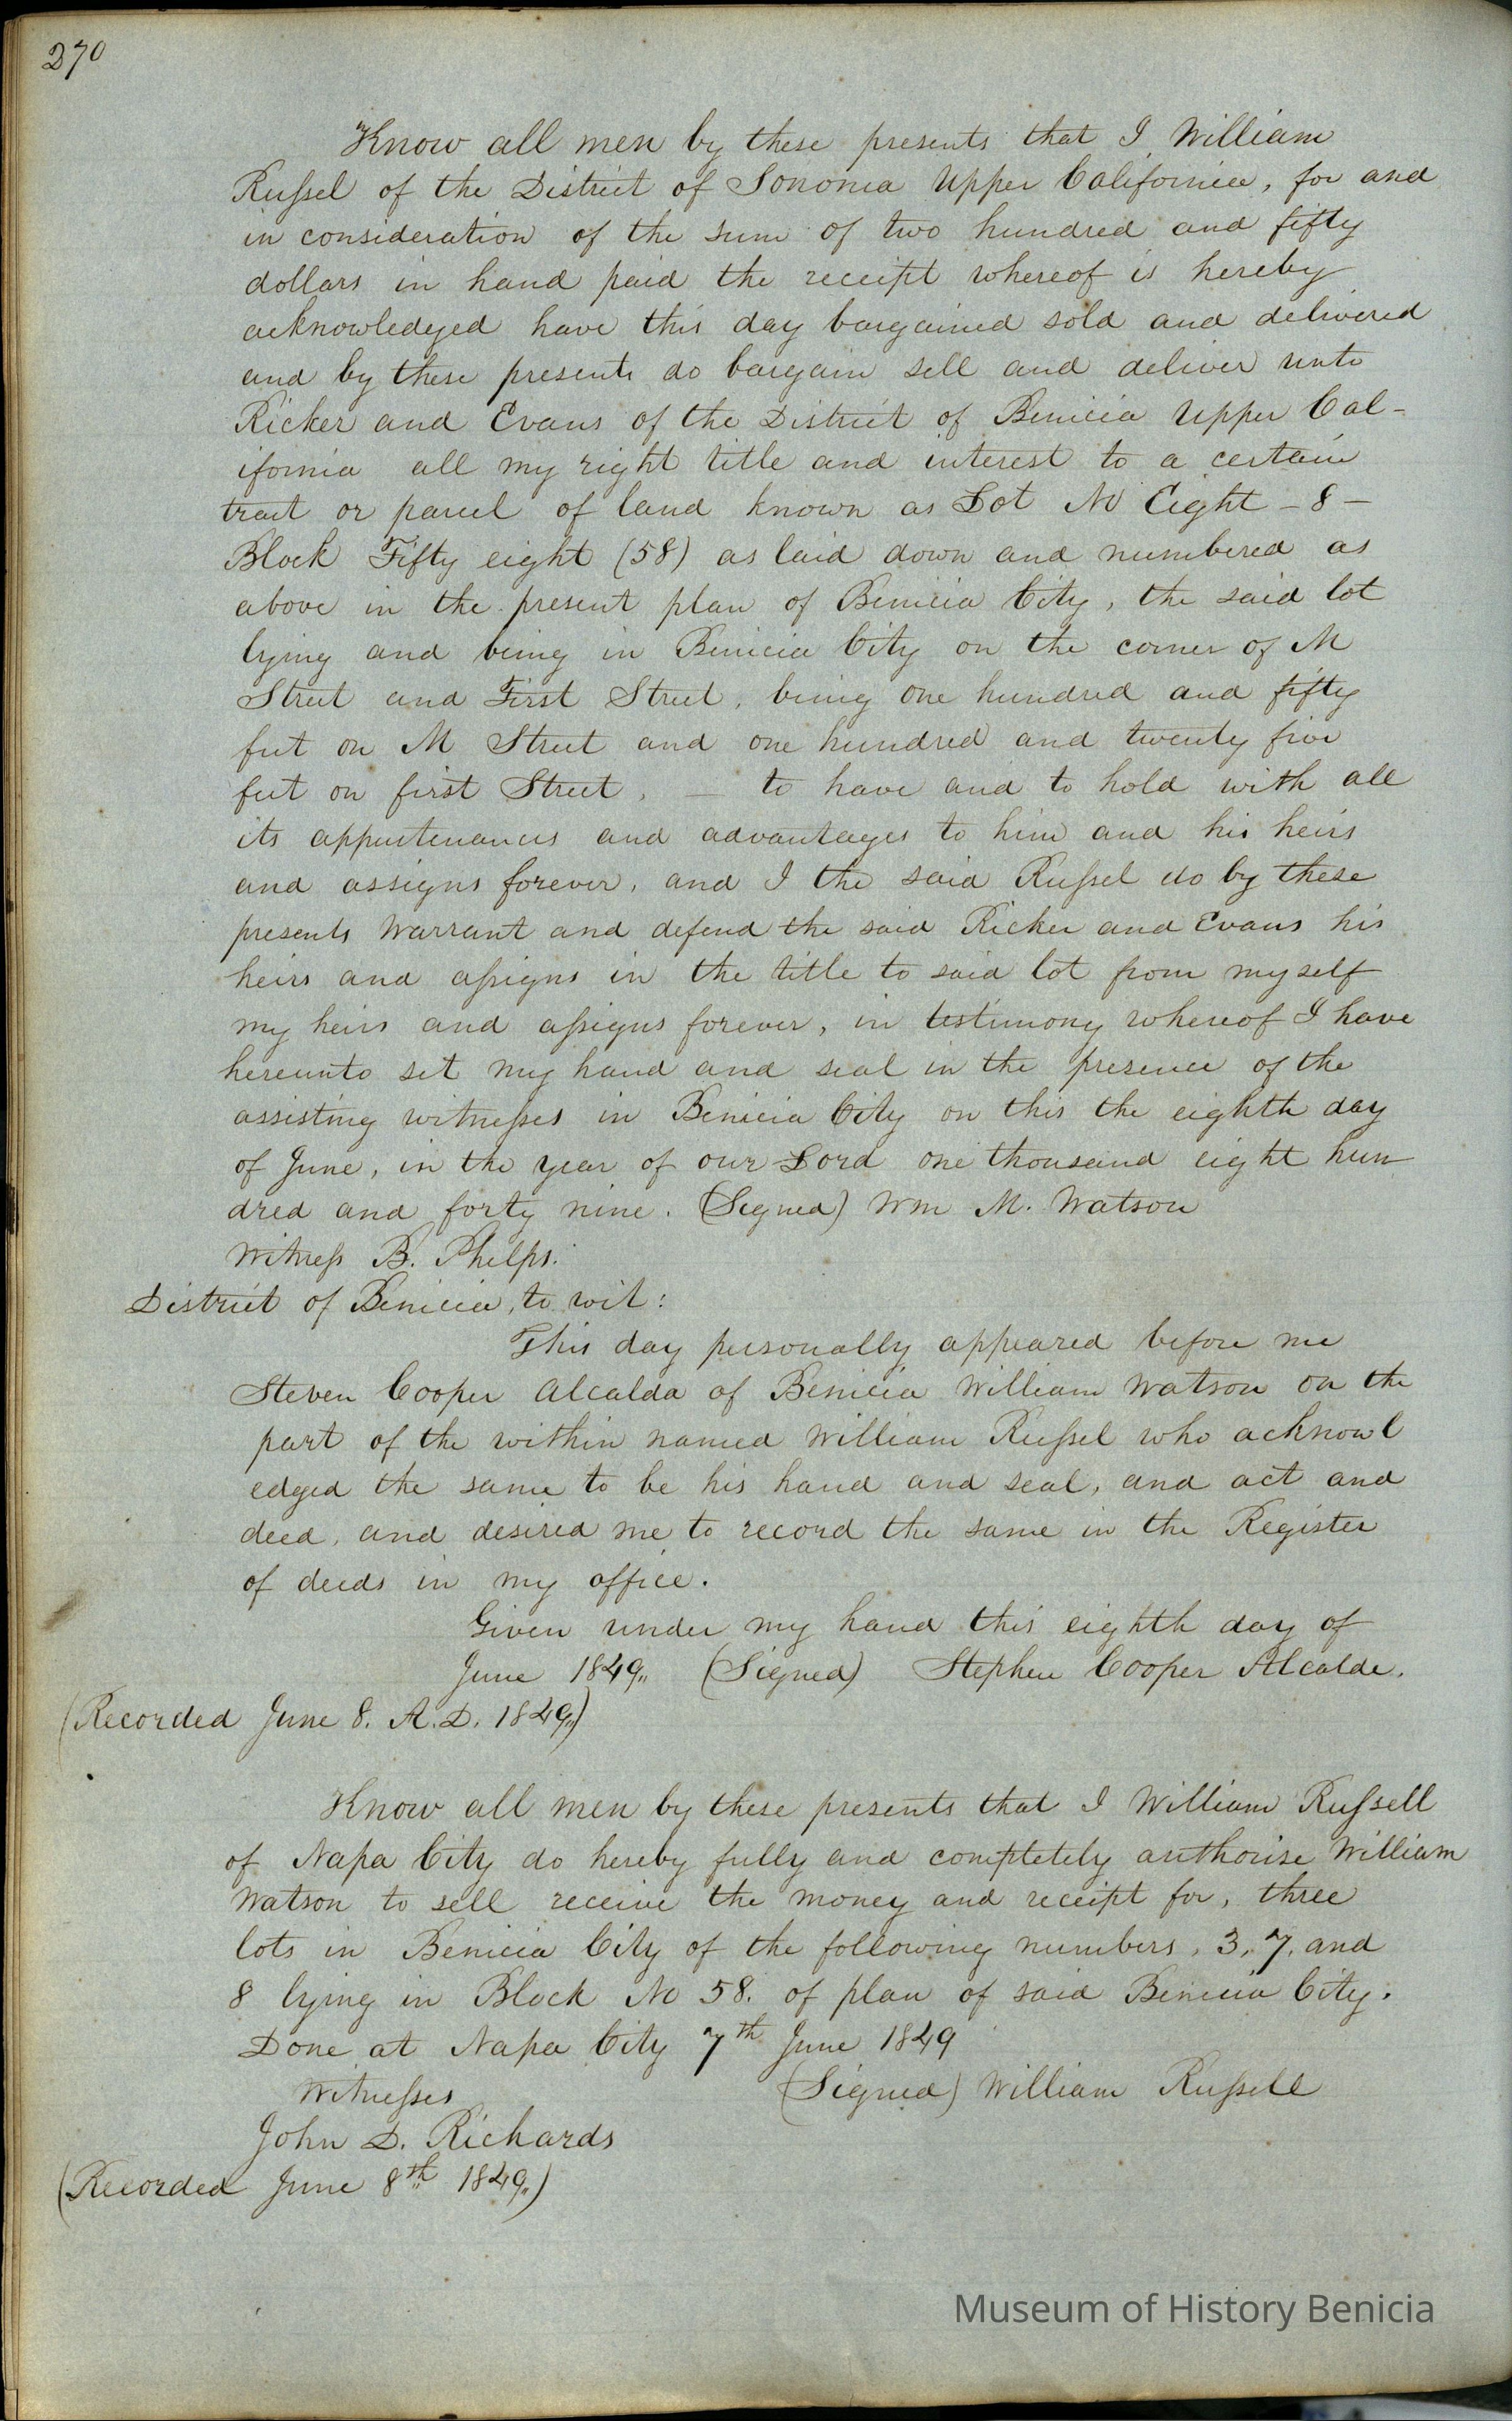 270
Know all men by these presents that I William
Russel of the District of Sonoma Upper California, for and
in consideration of the sum of two hundred and fifty
dollars in hand paid the receipt whereof is hereby
acknowledged have this day bargained sold and delivered
and by these presents do bargain sell and deliver unto
Ricker and Evans of the District of Benicia Upper Cal-
ifornia all my right title and interest to a certain
tract or parcel of land known as Lot No Eight - 8 -
Block Fifty eight (58) as laid down and numbered as
above in the present plan of Benicia City, the said lot
lying and being in Benicia City on the corner of M
Street and First Street, being one hundred and fifty
feet on M Street and one hundred and twenty five
feet on first Street, — to have and to hold with all
its appurtenances and advantages to him and his heirs
and assigns forever, and I the said Russel do by these
presents Warrant and defend the said Ricker and Evans his
heirs and assigns in the title to said lot from myself
my heirs and assigns forever, in testimony whereof I have
hereunto set my hand and seal in the presence of the
assisting witnesses in Benicia City on this the eighth day
of June, in the year of our Lord one thousand eight hun
dred and forty nine. (Signed) Wm M. Watson
Witness B. Phelps.
District of Benicia, to wit:
This day personally appeared before me
Steven Cooper Alcalda of Benicia William Watson on the
part of the within named William Russel who acknowl
edged the same to be his hand and seal, and act and
deed, and desired me to record the same in the Register
of deeds in my office.
Given under my hand this eighth day of
June 1849,, (Signed) Stephen Cooper Alcalde.
(Recorded June 8. A.D. 1849,,)
Know all men by these presents that I William Russell
of Napa City do hereby fully and completely authorise William
Watson to sell receive the money and receipt for, three
lots in Benicia City of the following numbers, 3, 7, and
8 lying in Block No 58. of plan of said Benicia City.
Done at Napa City 7th June 1849
Witnesses (Signed) William Russell
John D. Richards
(Recorded June 8th 1849,,)
Museum of History Benicia